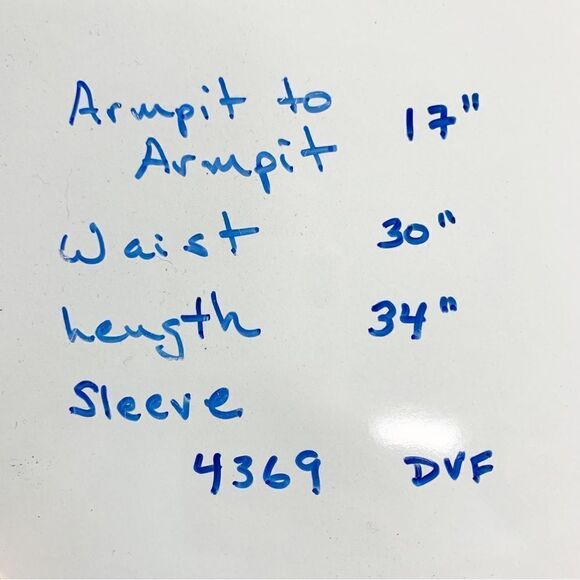 Armpit to
Armpit 17"
Waist 30"
Length 34"
Sleeve
4369 DVF